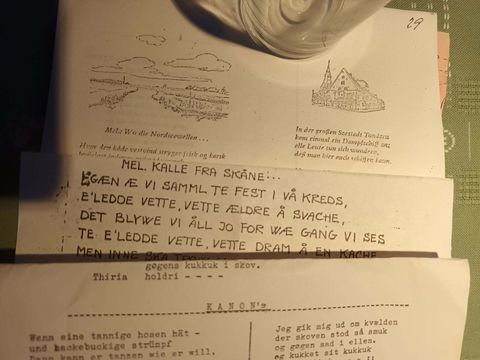 29
Mel: Wo die Nordseewellen...
Hvor den kolde vestvind stryger frisk og barsk
In der großen Seestadt Tondern
kam einmal ein Dampfschiff an;
alle Leute tun sich wundern,
daß man hier auch schiffen kann.
MEL. KALLE FRA SKÅNE:..
EGÆN Æ VI SAMML TE FEST I VÅ KREDS,
E'LEDDE VETTE, VETTE ÆLDRE Å SVACHE,
DET BLYWE VI ÅLL JO FOR WÆ GANG VI SES
TE E'LEDDE VETTE, VETTE DRAM Å EN KACHE
MEN INNE SKA
gøgens kukkuk i skov.
Thiria holdri - - - -
KANON's
Wenn eine tannige hosen hät -
und hackebuckige strümpf
Dann kann er tanzen wie er will,
Jeg gik mig ud om kvælden
der skoven stod så smuk
og gøgen sad i ellen.
og kukket sit kukkuk